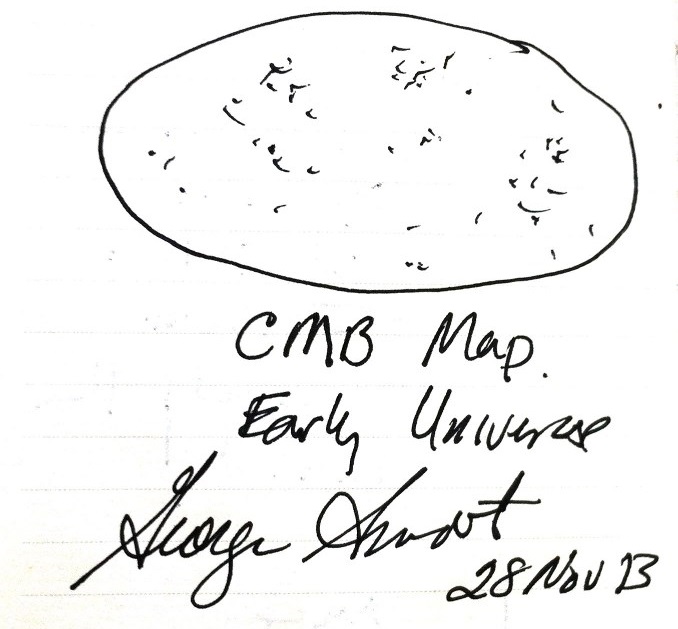 CMB Map.
Early Universe
George Smoot
28 Nov 13